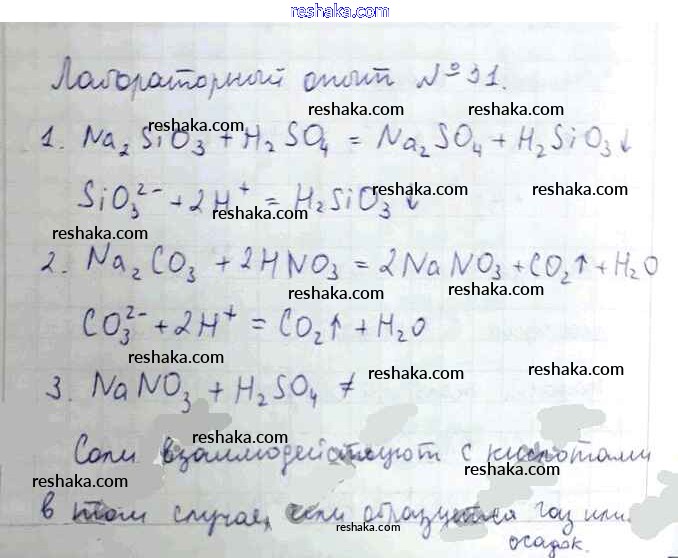 reshaka.com
Лабораторный опыт №31.
reshaka.com
reshaka.com reshaka.com
1. Na₂SiO₃ + H₂SO₄ = Na₂SO₄ + H₂SiO₃↓
reshaka.com
SiO₃²⁻ + 2H⁺ = H₂SiO₃↓
reshaka.com reshaka.com
reshaka.com
2. Na₂CO₃ + 2HNO₃ = 2NaNO₃ + CO₂↑ + H₂O
reshaka.com
CO₃²⁻ + 2H⁺ = CO₂↑ + H₂O
reshaka.com
reshaka.com
3. NaNO₃ + H₂SO₄ ≠
reshaka.com
Соли взаимодействуют с кислотами
reshaka.com reshaka.com
в том случае, если образуется газ или
reshaka.com
осадок.